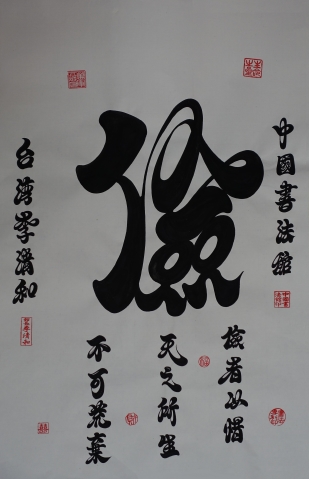 中國書法館
儉
儉者以惜
天之所生
不可荒棄
台灣清和